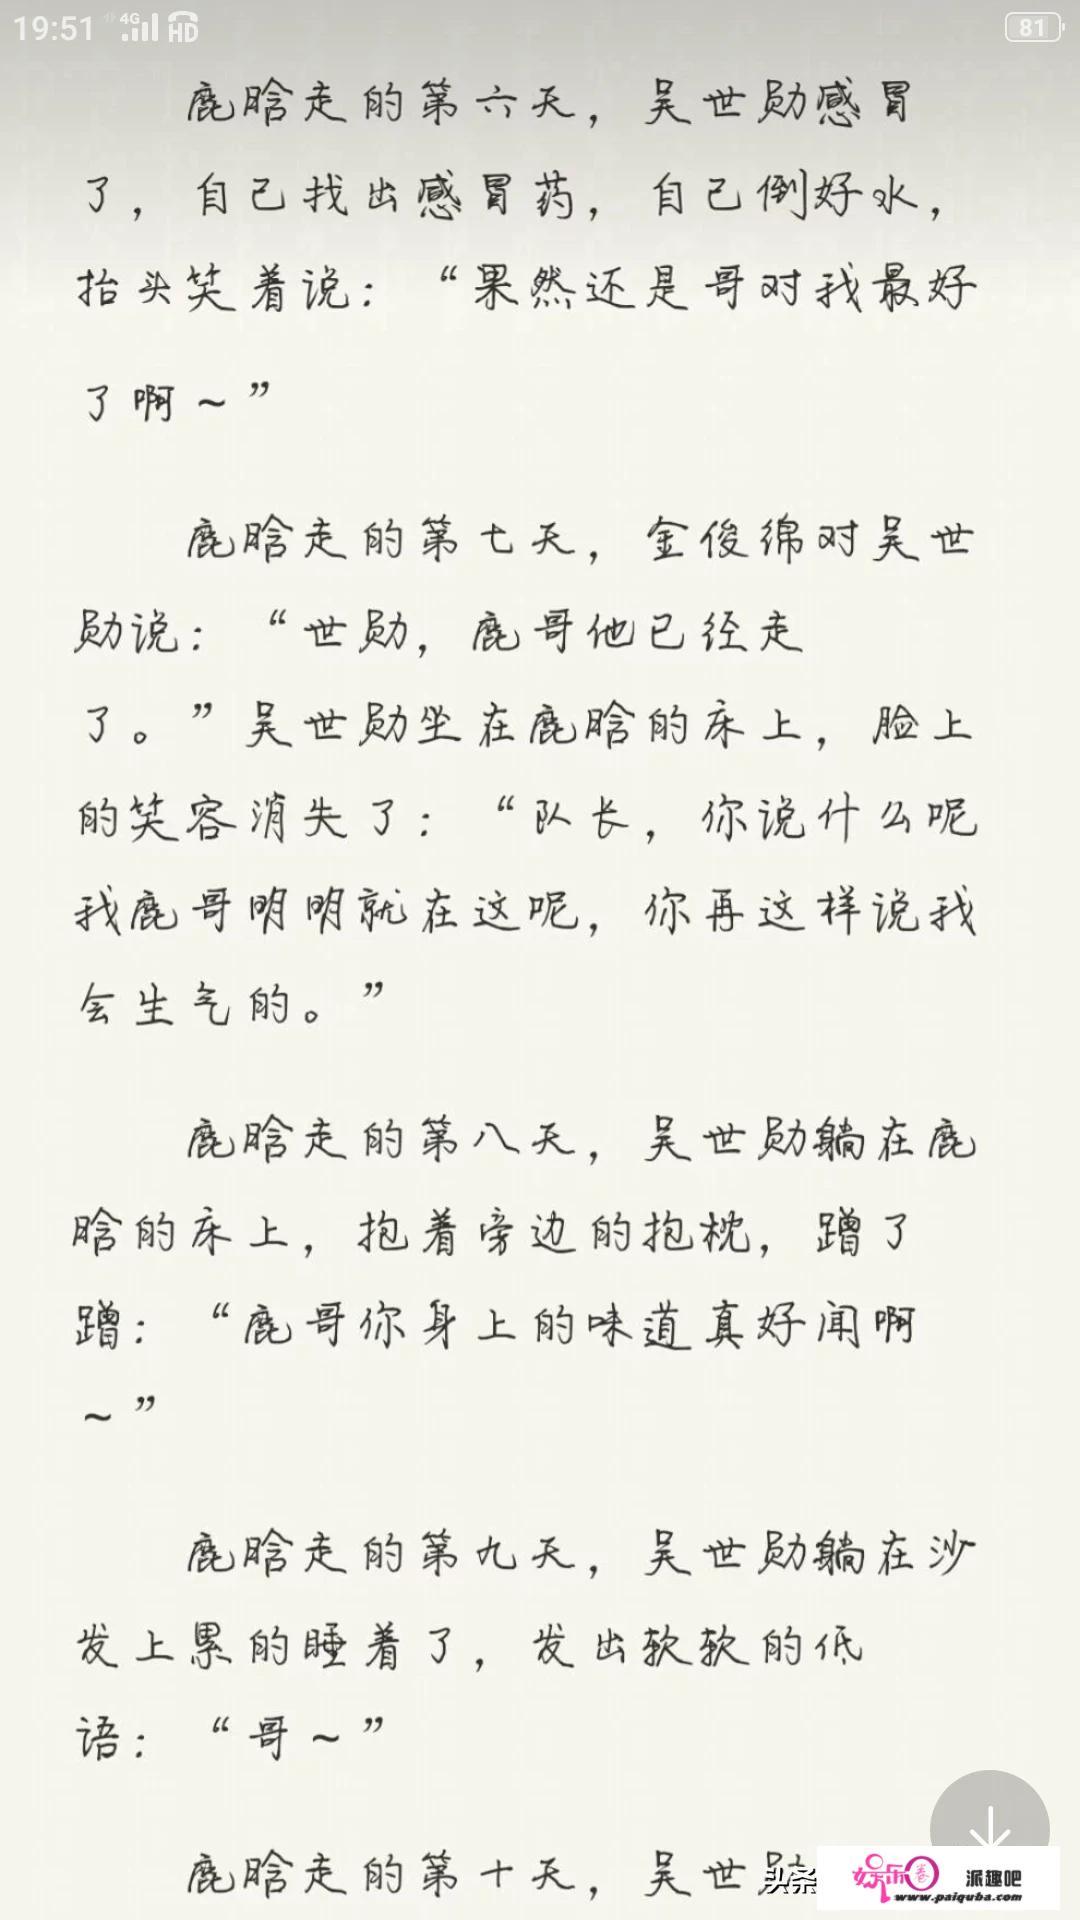 19:51 4G HD 81
鹿晗走的第六天，吴世勋感冒
了，自己找出感冒药，自己倒好水，
抬头笑着说：“果然还是哥对我最好
了啊～”
鹿晗走的第七天，金俊绵对吴世
勋说：“世勋，鹿哥他已经走
了。”吴世勋坐在鹿晗的床上，脸上
的笑容消失了：“队长，你说什么呢
我鹿哥明明就在这呢，你再这样说我
会生气的。”
鹿晗走的第八天，吴世勋躺在鹿
晗的床上，抱着旁边的抱枕，蹭了
蹭：“鹿哥你身上的味道真好闻啊
～”
鹿晗走的第九天，吴世勋躺在沙
发上累的睡着了，发出软软的低
语：“哥～”
鹿晗走的第十天，吴世勋
头条
娱乐圈 派趣吧
www.paiquba.com